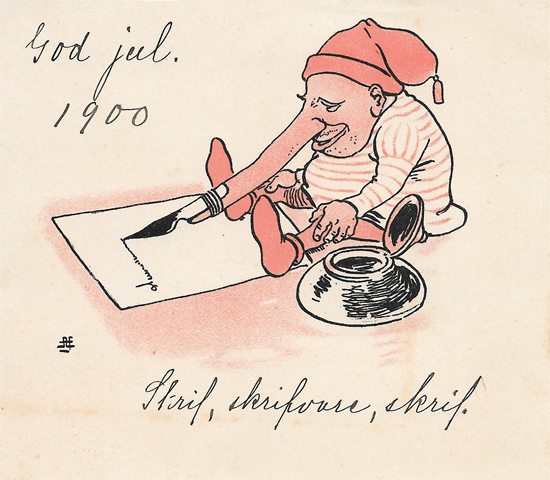 God jul.
1900
Skrif, skrifvare, skrif.